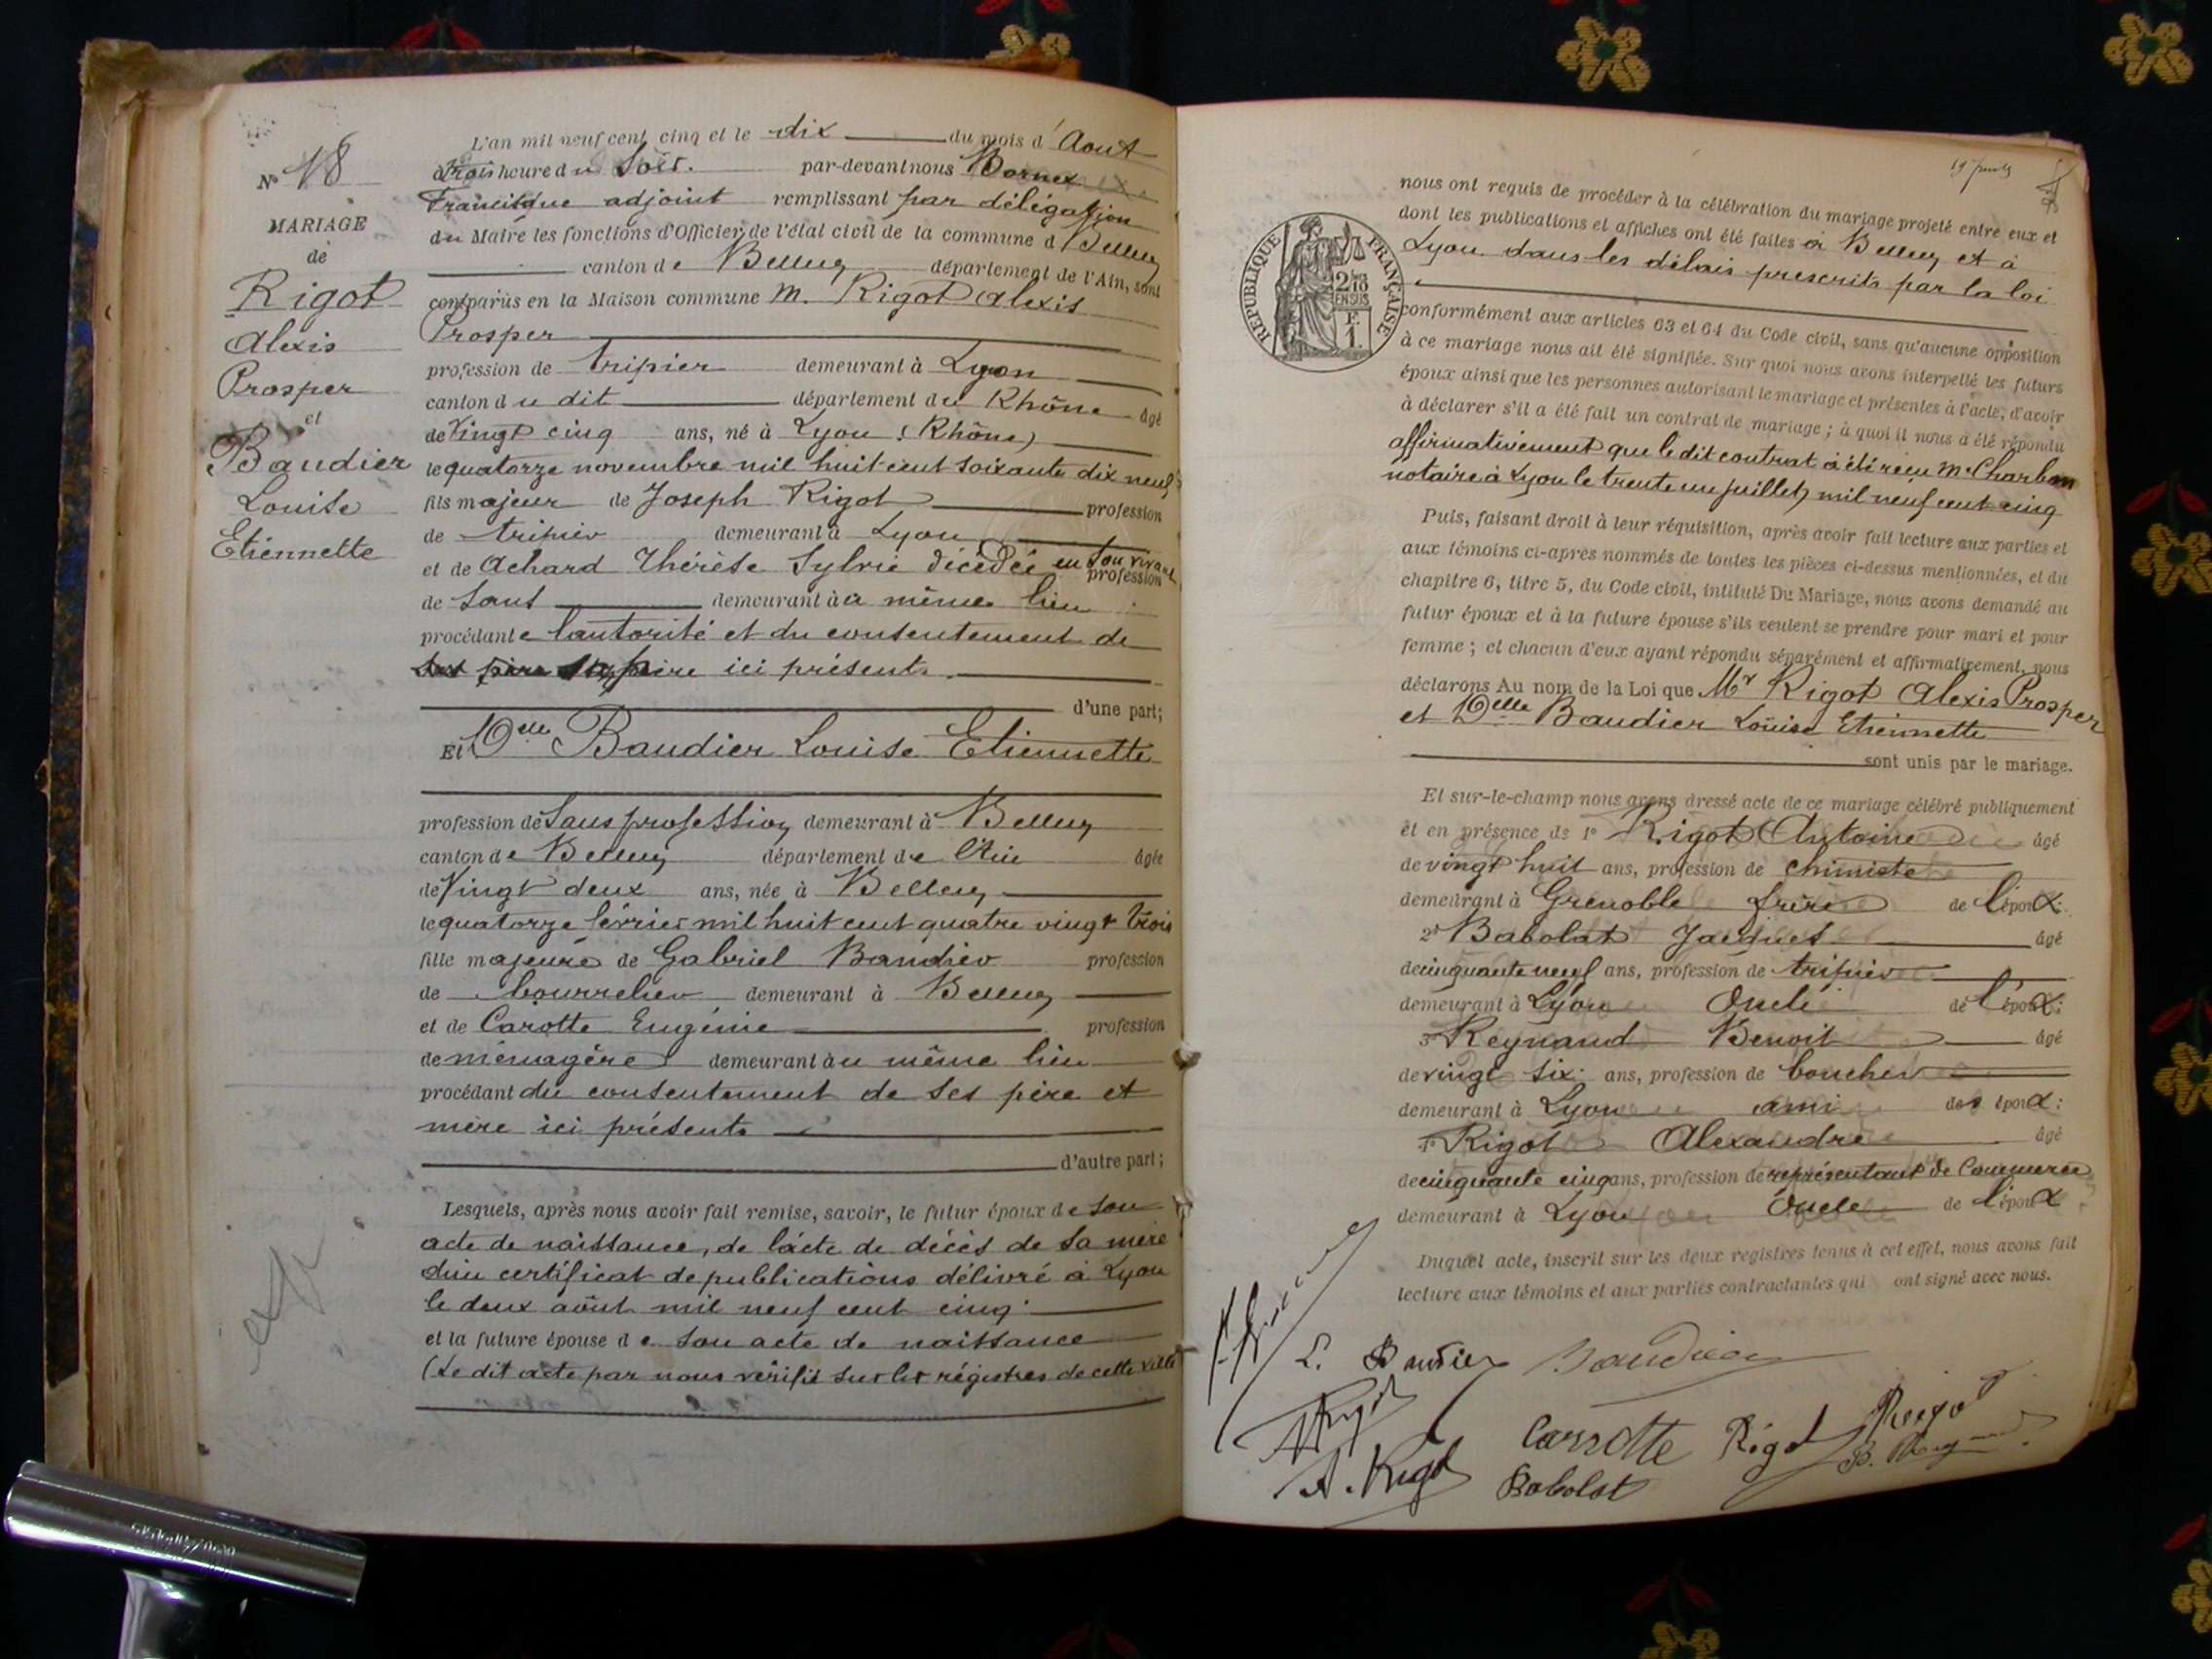 N° 18
MARIAGE
de
Rigot
Alexis
Prosper
et
Baudier
Louise
Etiennette
L'an mil neuf cent cinq et le dix du mois d'Aout
à trois heure du Soir. par-devant nous Bornex
Francisque adjoint remplissant par délégation
du Maire les fonctions d'Officier de l'état civil de la commune d Belley
canton de Belley département de l'Ain, sont
comparus en la Maison commune M. Rigot Alexis
Prosper
profession de tripier demeurant à Lyon
canton du dit département du Rhône âgé
de Vingt cinq ans, né à Lyon (Rhône)
le quatorze novembre mil huit cent soixante dix neuf
fils majeur de Joseph Rigot profession
de tripier demeurant à Lyon
et de Achard Thérèse Sylvie décédée en son vivant profession
de Sans demeurant à u même lieu
procédant e l'autorité et du consentement de
son père ici présent
d'une part;
Et Delle Baudier Louise Etiennette
profession de Sans profession demeurant à Belley
canton de Belley département de l'Ain âgée
de Vingt deux ans, née à Belley
le quatorze février mil huit cent quatre vingt trois
fille majeure de Gabriel Baudier profession
de bourrelier demeurant à Belley
et de Carotte Eugénie profession
de ménagère demeurant au même lieu
procédant du consentement de ses père et
mère ici présents
d'autre part;
Lesquels, après nous avoir fait remise, savoir, le futur époux de son
acte de naissance, de l'acte de décès de sa mère
d'un certificat de publications délivré à Lyon
le deux août mil neuf cent cinq.
et la future épouse de son acte de naissance
(Le dit acte par nous vérifié sur les régistres de cette ville
nous ont requis de procéder à la célébration du mariage projeté entre eux et
dont les publications et affiches ont été faites à Belley et à
Lyon dans les délais prescrits par la loi
RÉPUBLIQUE FRANÇAISE
2/10
EN SUS
F.
1.
conformément aux articles 63 et 64 du Code civil, sans qu'aucune opposition
à ce mariage nous ait été signifiée. Sur quoi nous avons interpellé les futurs
époux ainsi que les personnes autorisant le mariage et présentes à l'acte, d'avoir
à déclarer s'il a été fait un contrat de mariage ; à quoi il nous a été répondu
affirmativement que le dit contrat a été reçu Me Charbon
notaire à Lyon le trente un juillet mil neuf cent cinq
Puis, faisant droit à leur réquisition, après avoir fait lecture aux parties et
aux témoins ci-après nommés de toutes les pièces ci-dessus mentionnées, et du
chapitre 6, titre 5, du Code civil, intitulé Du Mariage, nous avons demandé au
futur époux et à la future épouse s'ils veulent se prendre pour mari et pour
femme ; et chacun d'eux ayant répondu séparément et affirmativement, nous
déclarons Au nom de la Loi que Mr Rigot Alexis Prosper
et Delle Baudier Louise Etiennette
sont unis par le mariage.
Et sur-le-champ nous avons dressé acte de ce mariage célébré publiquement
et en présence de 1° Rigot Antoine âgé
de vingt huit ans, profession de chimiste
demeurant à Grenoble frère de l'époux:
2° Babolat Jacques âgé
de cinquante neuf ans, profession de tripier
demeurant à Lyon Oncle de l'époux:
3° Reynaud Benoit âgé
de vingt six ans, profession de boucher
demeurant à Lyon ami des époux:
4° Rigot Alexandre âgé
de cinquante cinq ans, profession de représentant de Commerce
demeurant à Lyon Oncle de l'époux
Duquel acte, inscrit sur les deux registres tenus à cet effet, nous avons fait
lecture aux témoins et aux parties contractantes qui ont signé avec nous.
L. Baudier Baudier
A. Rigot
Carrotte Rigot Rigot
Babolat